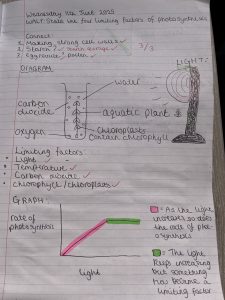 Wednesday 11th June 2025
WALT: State the four limiting factors of photosynthesis
Connect:
1. Making strong cell walls ✓
2. Starch ✓ 3/3
3. Fragrance / pollen ✓
DIAGRAM:
LIGHT:
water
carbon
dioxide
aquatic plant
oxygen
chloroplasts
contain chlorophyll
Limiting factors:
• Light
• Temperature ✓
• Carbon dioxide ✓
• chlorophyll/chloroplasts ✓
GRAPH:
rate of
photosynthesis
Light
= As the light
increases so does
the rate of pho-
tosynthesis
= The light
keeps increasing
but something
has become a
limiting factor